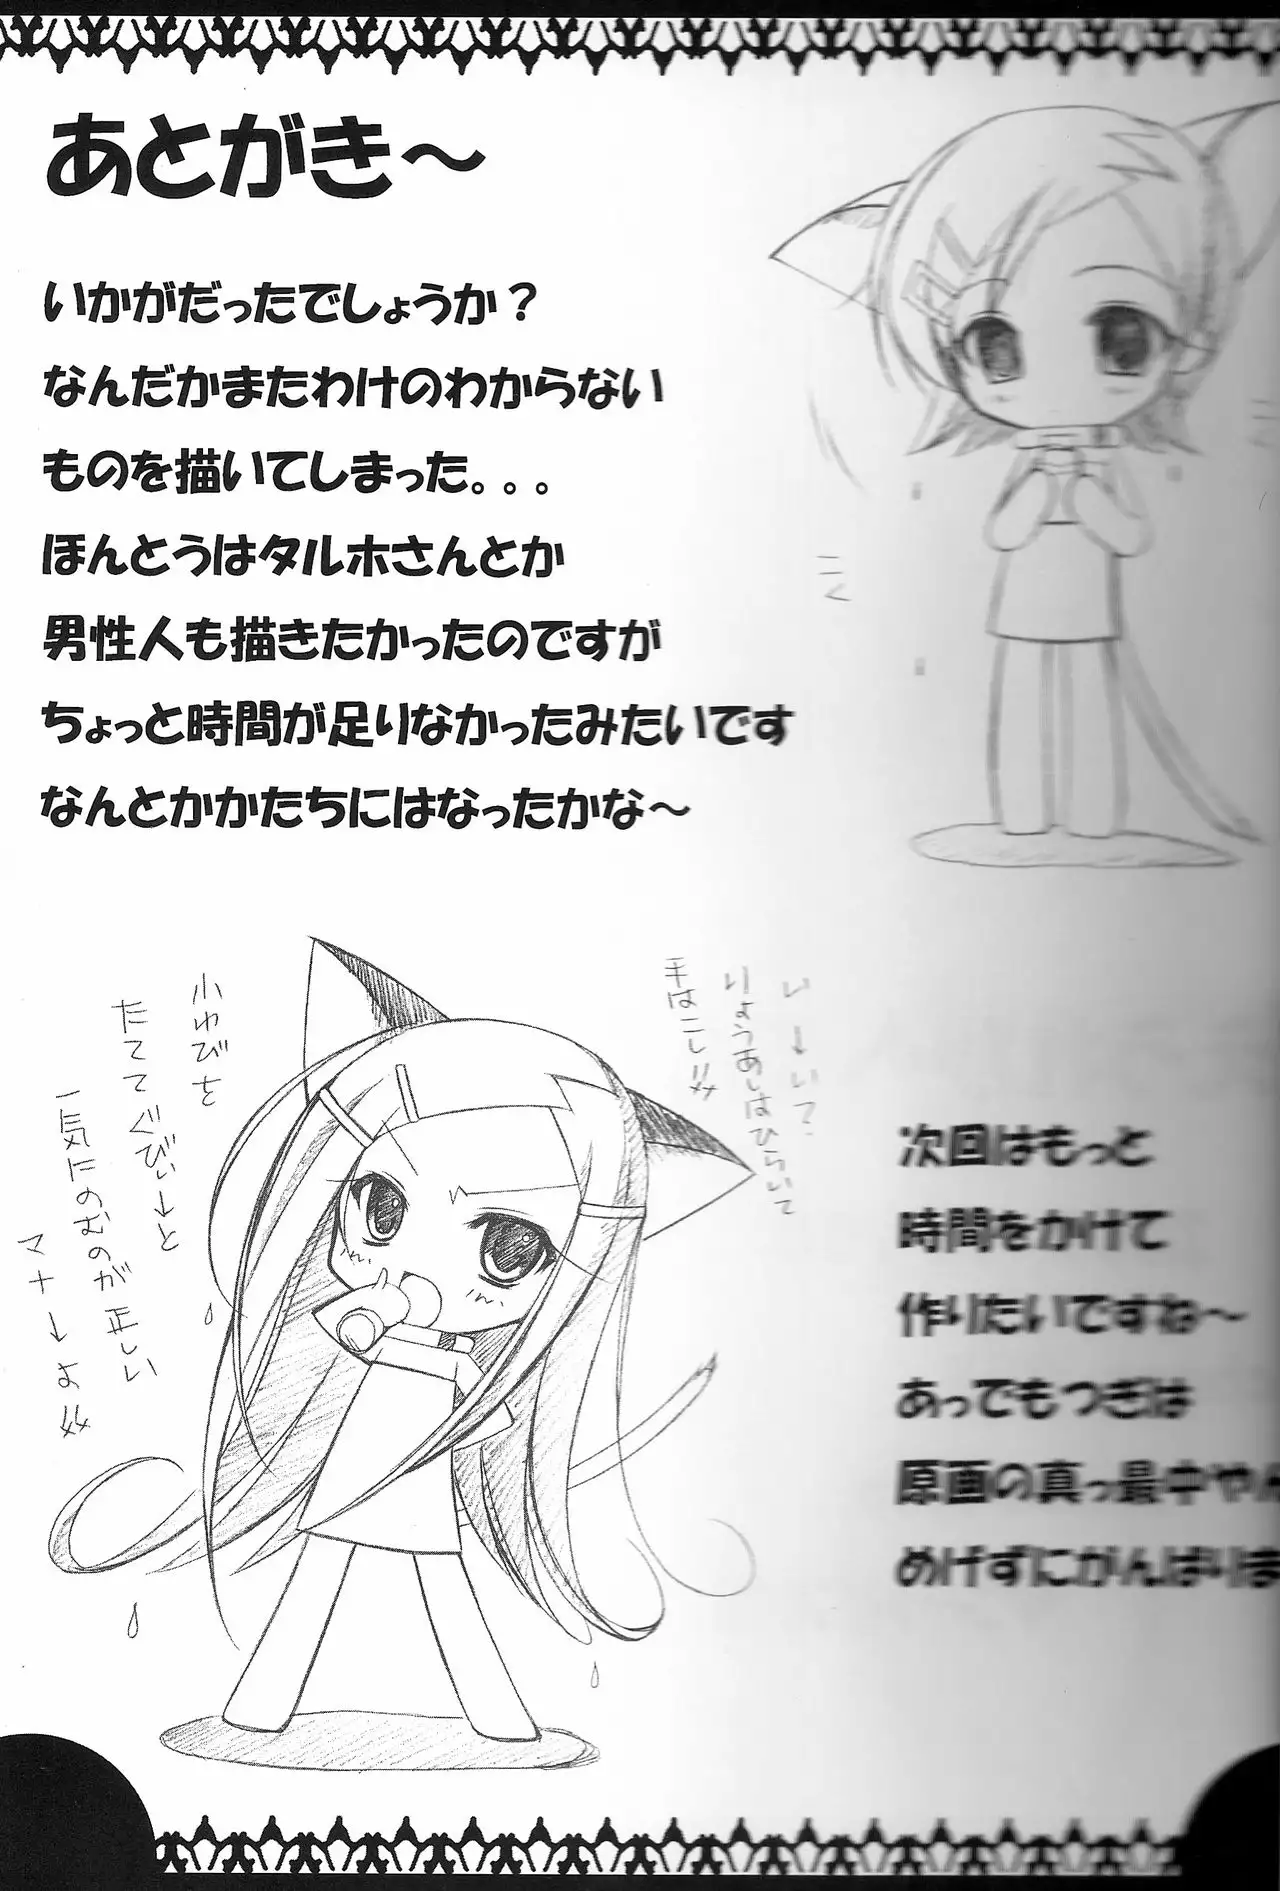 あとがき～
いかがだったでしょうか？
なんだかまたわけのわからない
ものを描いてしまった。。。
ほんとうはタルホさんとか
男性人も描きたかったのですが
ちょっと時間が足りなかったみたいです
なんとかかたちにはなったかな～
い→い？
りょうあしはひらいて
手はこし!!
小ゆびを
たててぐびぃ→と
一気にのむのが正しい
マナ→よ
次回はもっと
時間をかけて
作りたいですね～
あってもつぎは
原画の真っ最中やん
めげずにがんばりま